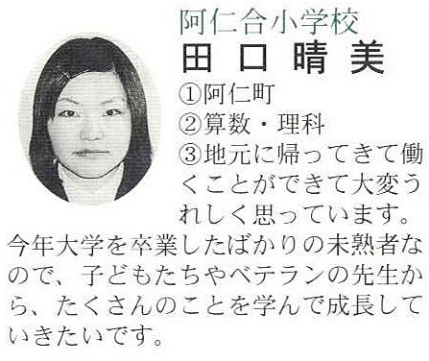 阿仁合小学校
田口晴美
①阿仁町
②算数・理科
③地元に帰ってきて働
くことができて大変う
れしく思っています。
今年大学を卒業したばかりの未熟者な
ので、子どもたちやベテランの先生か
ら、たくさんのことを学んで成長して
いきたいです。